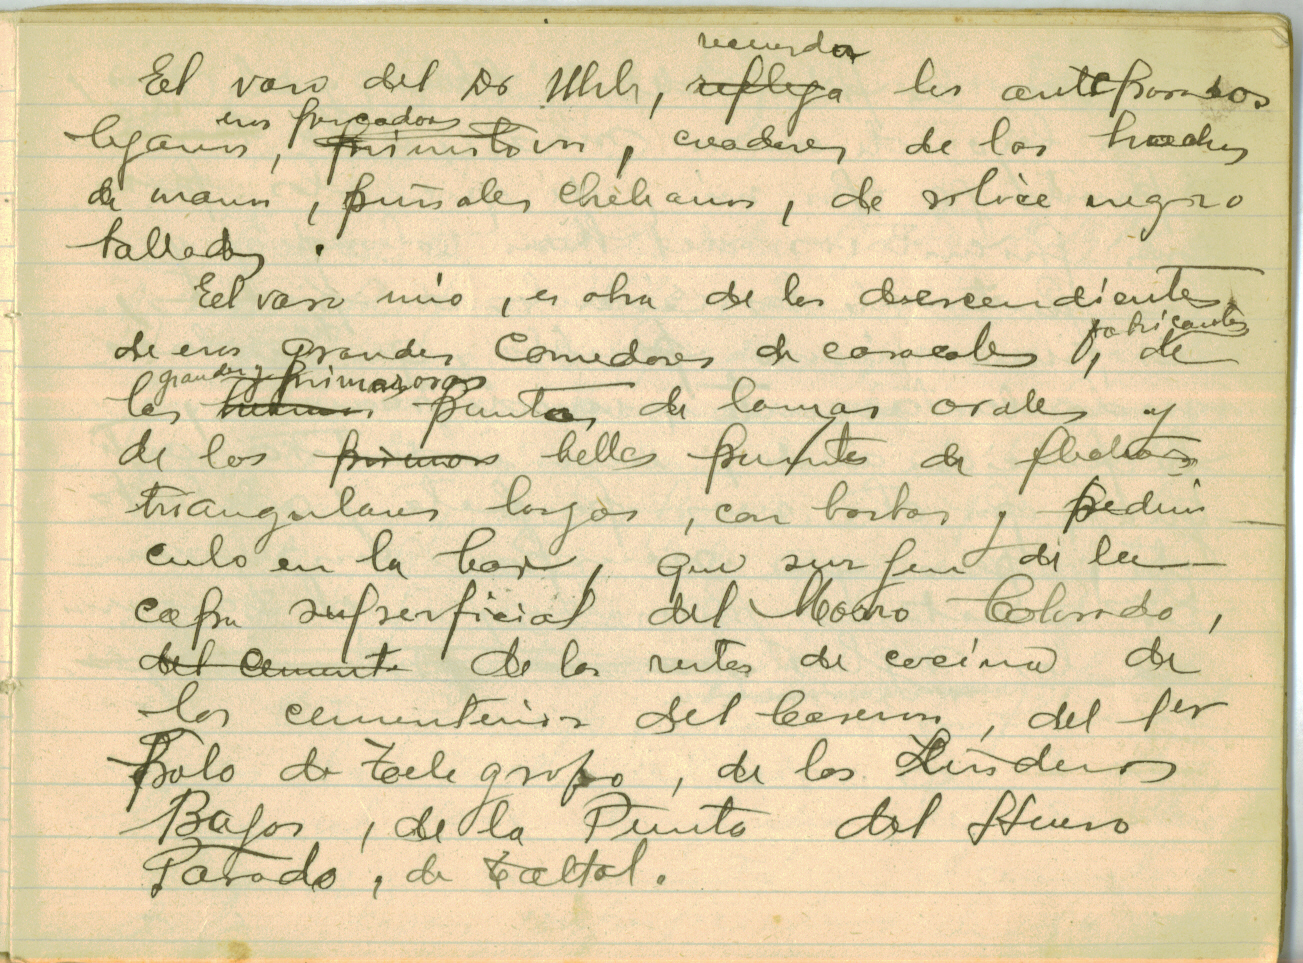 recuerda
El vaso del Dr Uhle, reflega los antepasados
esos pescadores
lejanos, primitivos, creadores de las hachas
de mano, puñales cheleanos, de silice negro
tallados.
El vaso mio, es obra de los descendientes
fabricantes
de esos grandes Comedores de caracoles, de
grandes y primorosas
las puntas de lanzas ovales y
de las primor bellas puntas de flechas
triangulares largas, con barbas y pedún
culo en la base, que surgen de la
capa superficial del Morro Colorado,
del cement de los restos de cocina de
los cementerios del Caseron, del
Palo de Telegrafo, de los Linderos
Bajos, de la Punta del Hueso
Parado, de Taltal.